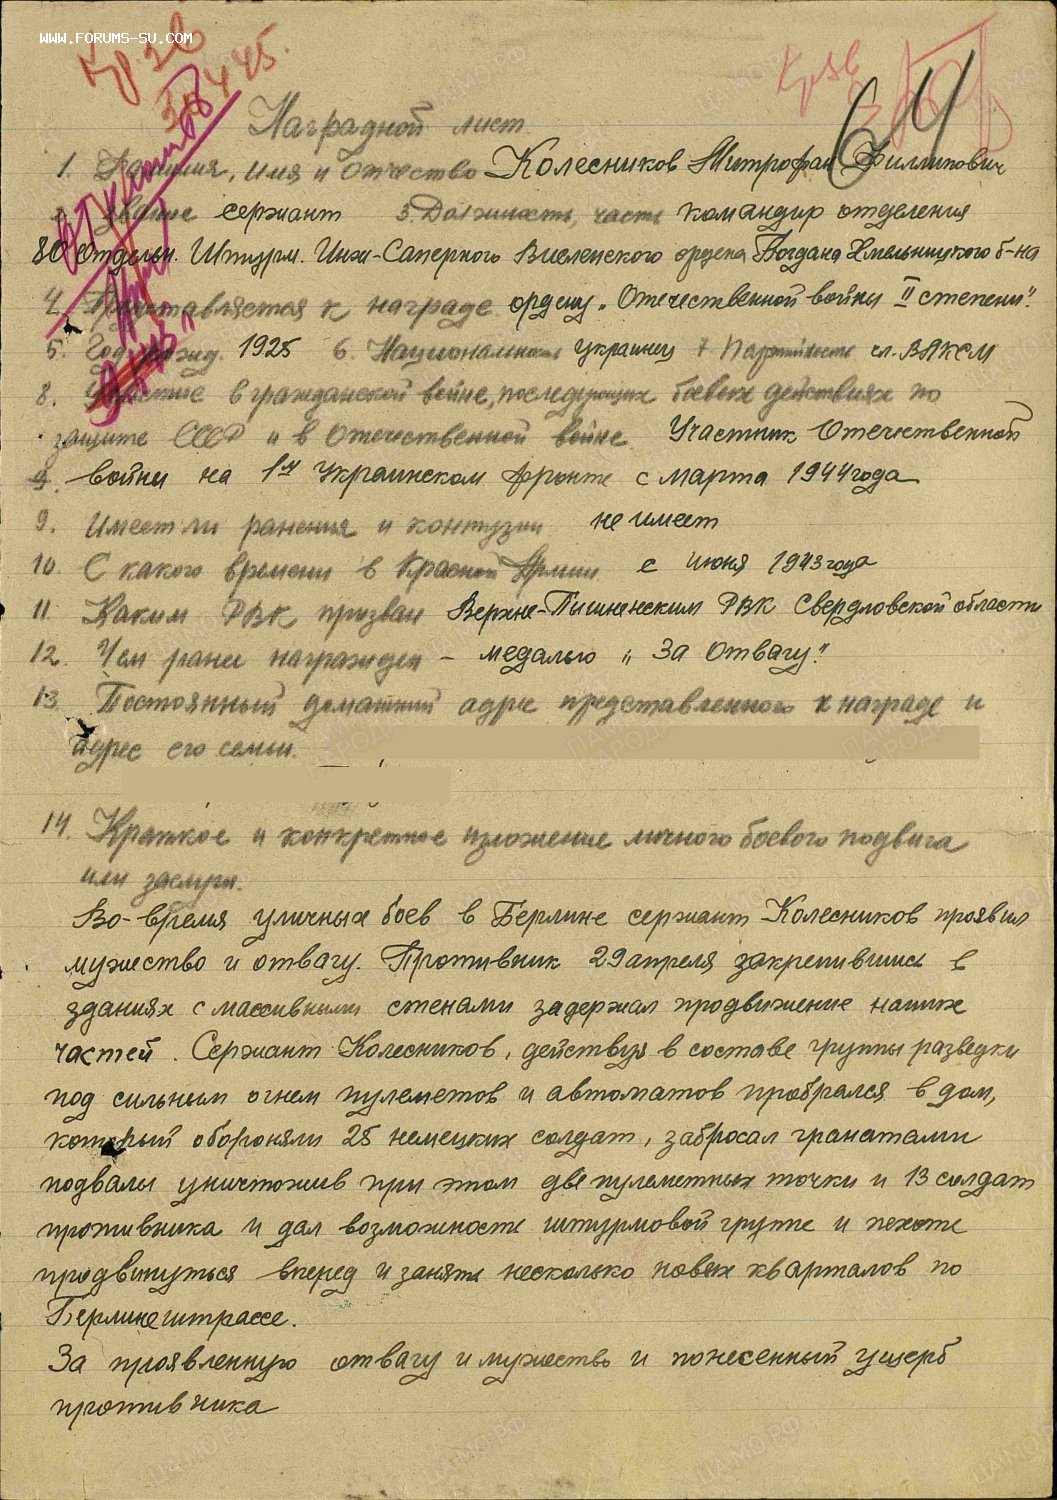 WWW.FORUMS-SU.COM
Наградной лист
1. Фамилия, имя и отчество Колесников Митрофан Филлипович
2. Звание сержант 3. Должность, часть командир отделения
80 Отдельн. Штурм. Инж-Саперного Висленского ордена Богдана Хмельницкого б-на
4. Представляется к награде ордену „Отечественной войны II степени".
5. Год рожд. 1925 6. Национальность украинец 7 Партийность чл. ВЛКСМ
8. Участие в гражданской войне, последующих боевых действиях по
защите СССР и в Отечественной войне Участник Отечественной
войны на 1ом Украинском фронте с марта 1944 года
9. Имеет ли ранения и контузии не имеет
10. С какого времени в Красной Армии с июня 1943 года
11 Каким РВК призван Верхне-Пышменским РВК Свердловской области
12. Чем ранее награжден – медалью „За Отвагу".
13. Постоянный домашний адрес представленного к награде и
адрес его семьи.
14. Краткое и конкретное изложение личного боевого подвига
или заслуги.
Во-время уличных боев в Берлине сержант Колесников проявил
мужество и отвагу. Противник 29 апреля закрепившись в
зданиях с массивными стенами задержал продвижение наших
частей. Сержант Колесников, действуя в составе группы разведки
под сильным огнем пулеметов и автоматов пробрался в дом,
который обороняли 25 немецких солдат, забросал гранатами
подвалы уничтожив при этом две пулеметных точки и 13 солдат
противника и дал возможность штурмовой группе и пехоте
продвинуться вперед и занять несколько новых кварталов по
Берлинештрассе.
За проявленную отвагу и мужество и понесенный ущерб
противника